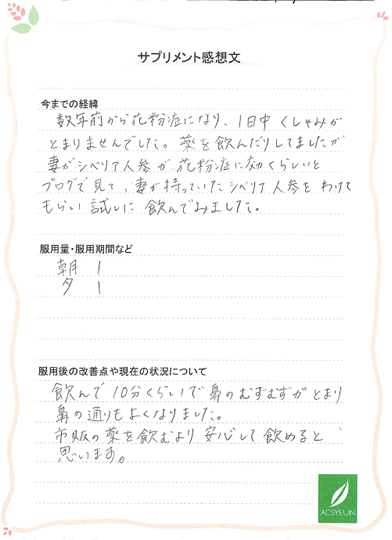 サプリメント感想文
今までの経緯
数年前から花粉症になり、1日中くしゃみが
とまりませんでした。薬を飲んだりしてましたが
妻がシベリア人参が花粉症に効くらしいと
ブログで見て、妻が持っていたシベリア人参をわけて
もらい試しに飲んでみました。
服用量・服用期間など
朝 1
夕 1
服用後の改善点や現在の状況について
飲んで10分くらいで鼻のむずむずがとまり
鼻の通りもよくなりました。
市販の薬を飲むより安心して飲めると
思います。
ACSYSUN